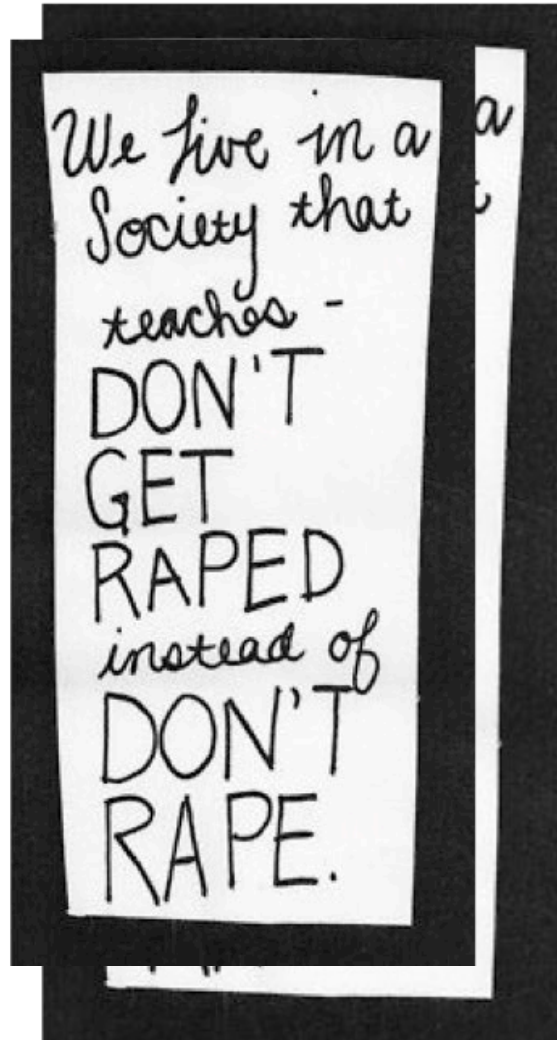 We live in a
Society that
teaches -
DON'T
GET
RAPED
instead of
DON'T
RAPE.
a